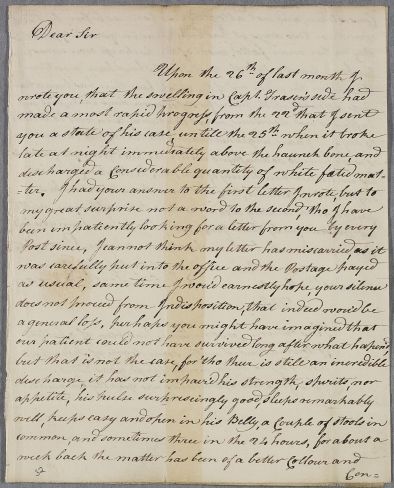 Dear Sir
Upon the 26th of last month I
wrote you, that the swelling in Capt. Fraser's side had
made a most rapid progress, from the 22d that I sent
you a state of his case, untill the 25th when it broke
late at night immediately above the haunch bone, and
discharged a Considerable quantity of white fœtid mat-
=ter. I had your answer to the first letter I wrote, but to
my great surprise not a word to the second, tho' I have
been impatiently looking for a letter from you by every
Post since, I cannot think my letter has miscarried, as it
was carefully put into the office and the Postage payed
as usual, same time I would earnestly hope, your silence
does not proceed from Indisposition, that indeed would be
a general loss, perhaps you might have imagined that
our patient could not have survived long after what happen'd,
but that is not the case, for tho there is still an incredible
discharge, it has not impaired his strength, spirits, nor
appetite, his pulse surpressingly good, sleeps remarkably
well, keeps easy and open in his Belly a Couple of stools in
common, and sometimes three in the 24 hours, for about a
week back the matter has been of a better Collour and
Con=